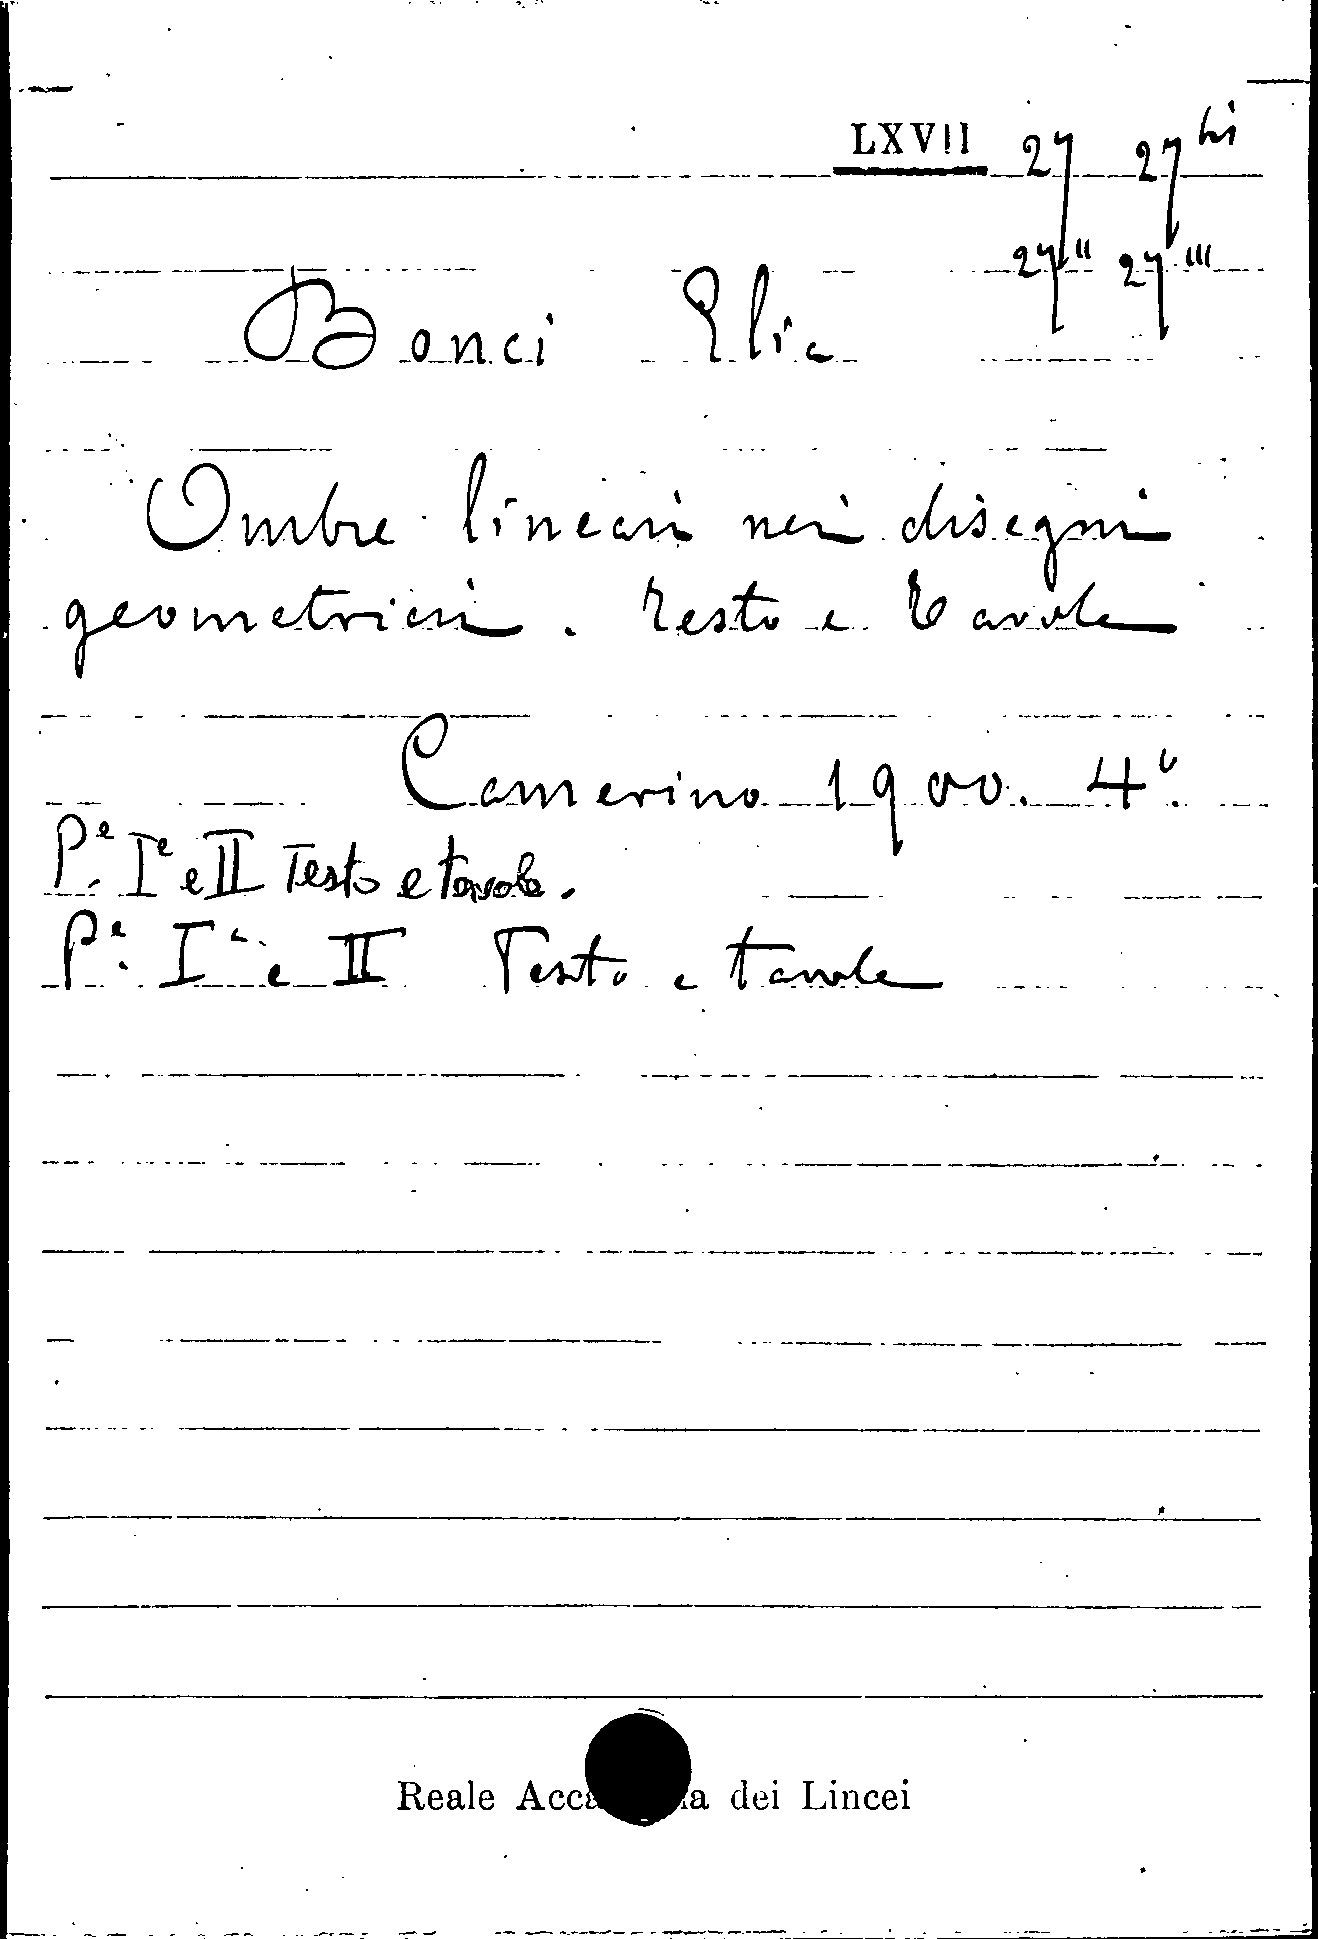 LXVII 27 27 bis
27 II 27 III
Bonci Elia
Ombre lineari nei disegni
geometrici. Testo e Tavole
Camerino 1900. 4°.
P.e Ie e II Testo e tavole.
P.e Ia e II Testo e tavole
Reale Acca ia dei Lincei